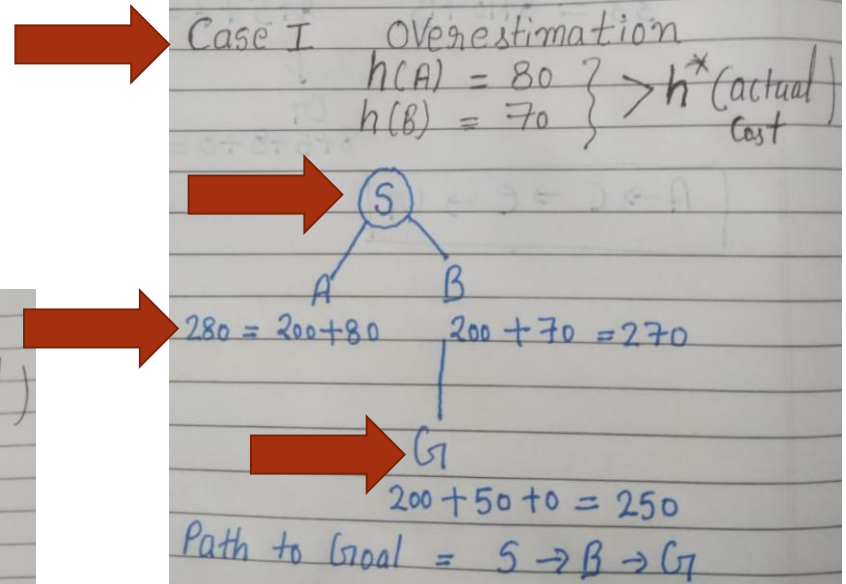 Case I Overestimation
h(A) = 80
h(B) = 70 } > h* (actual cost)
S
A B
280 = 200+80 200 + 70 = 270
G
200 + 50 + 0 = 250
Path to Goal = S → B → G
)